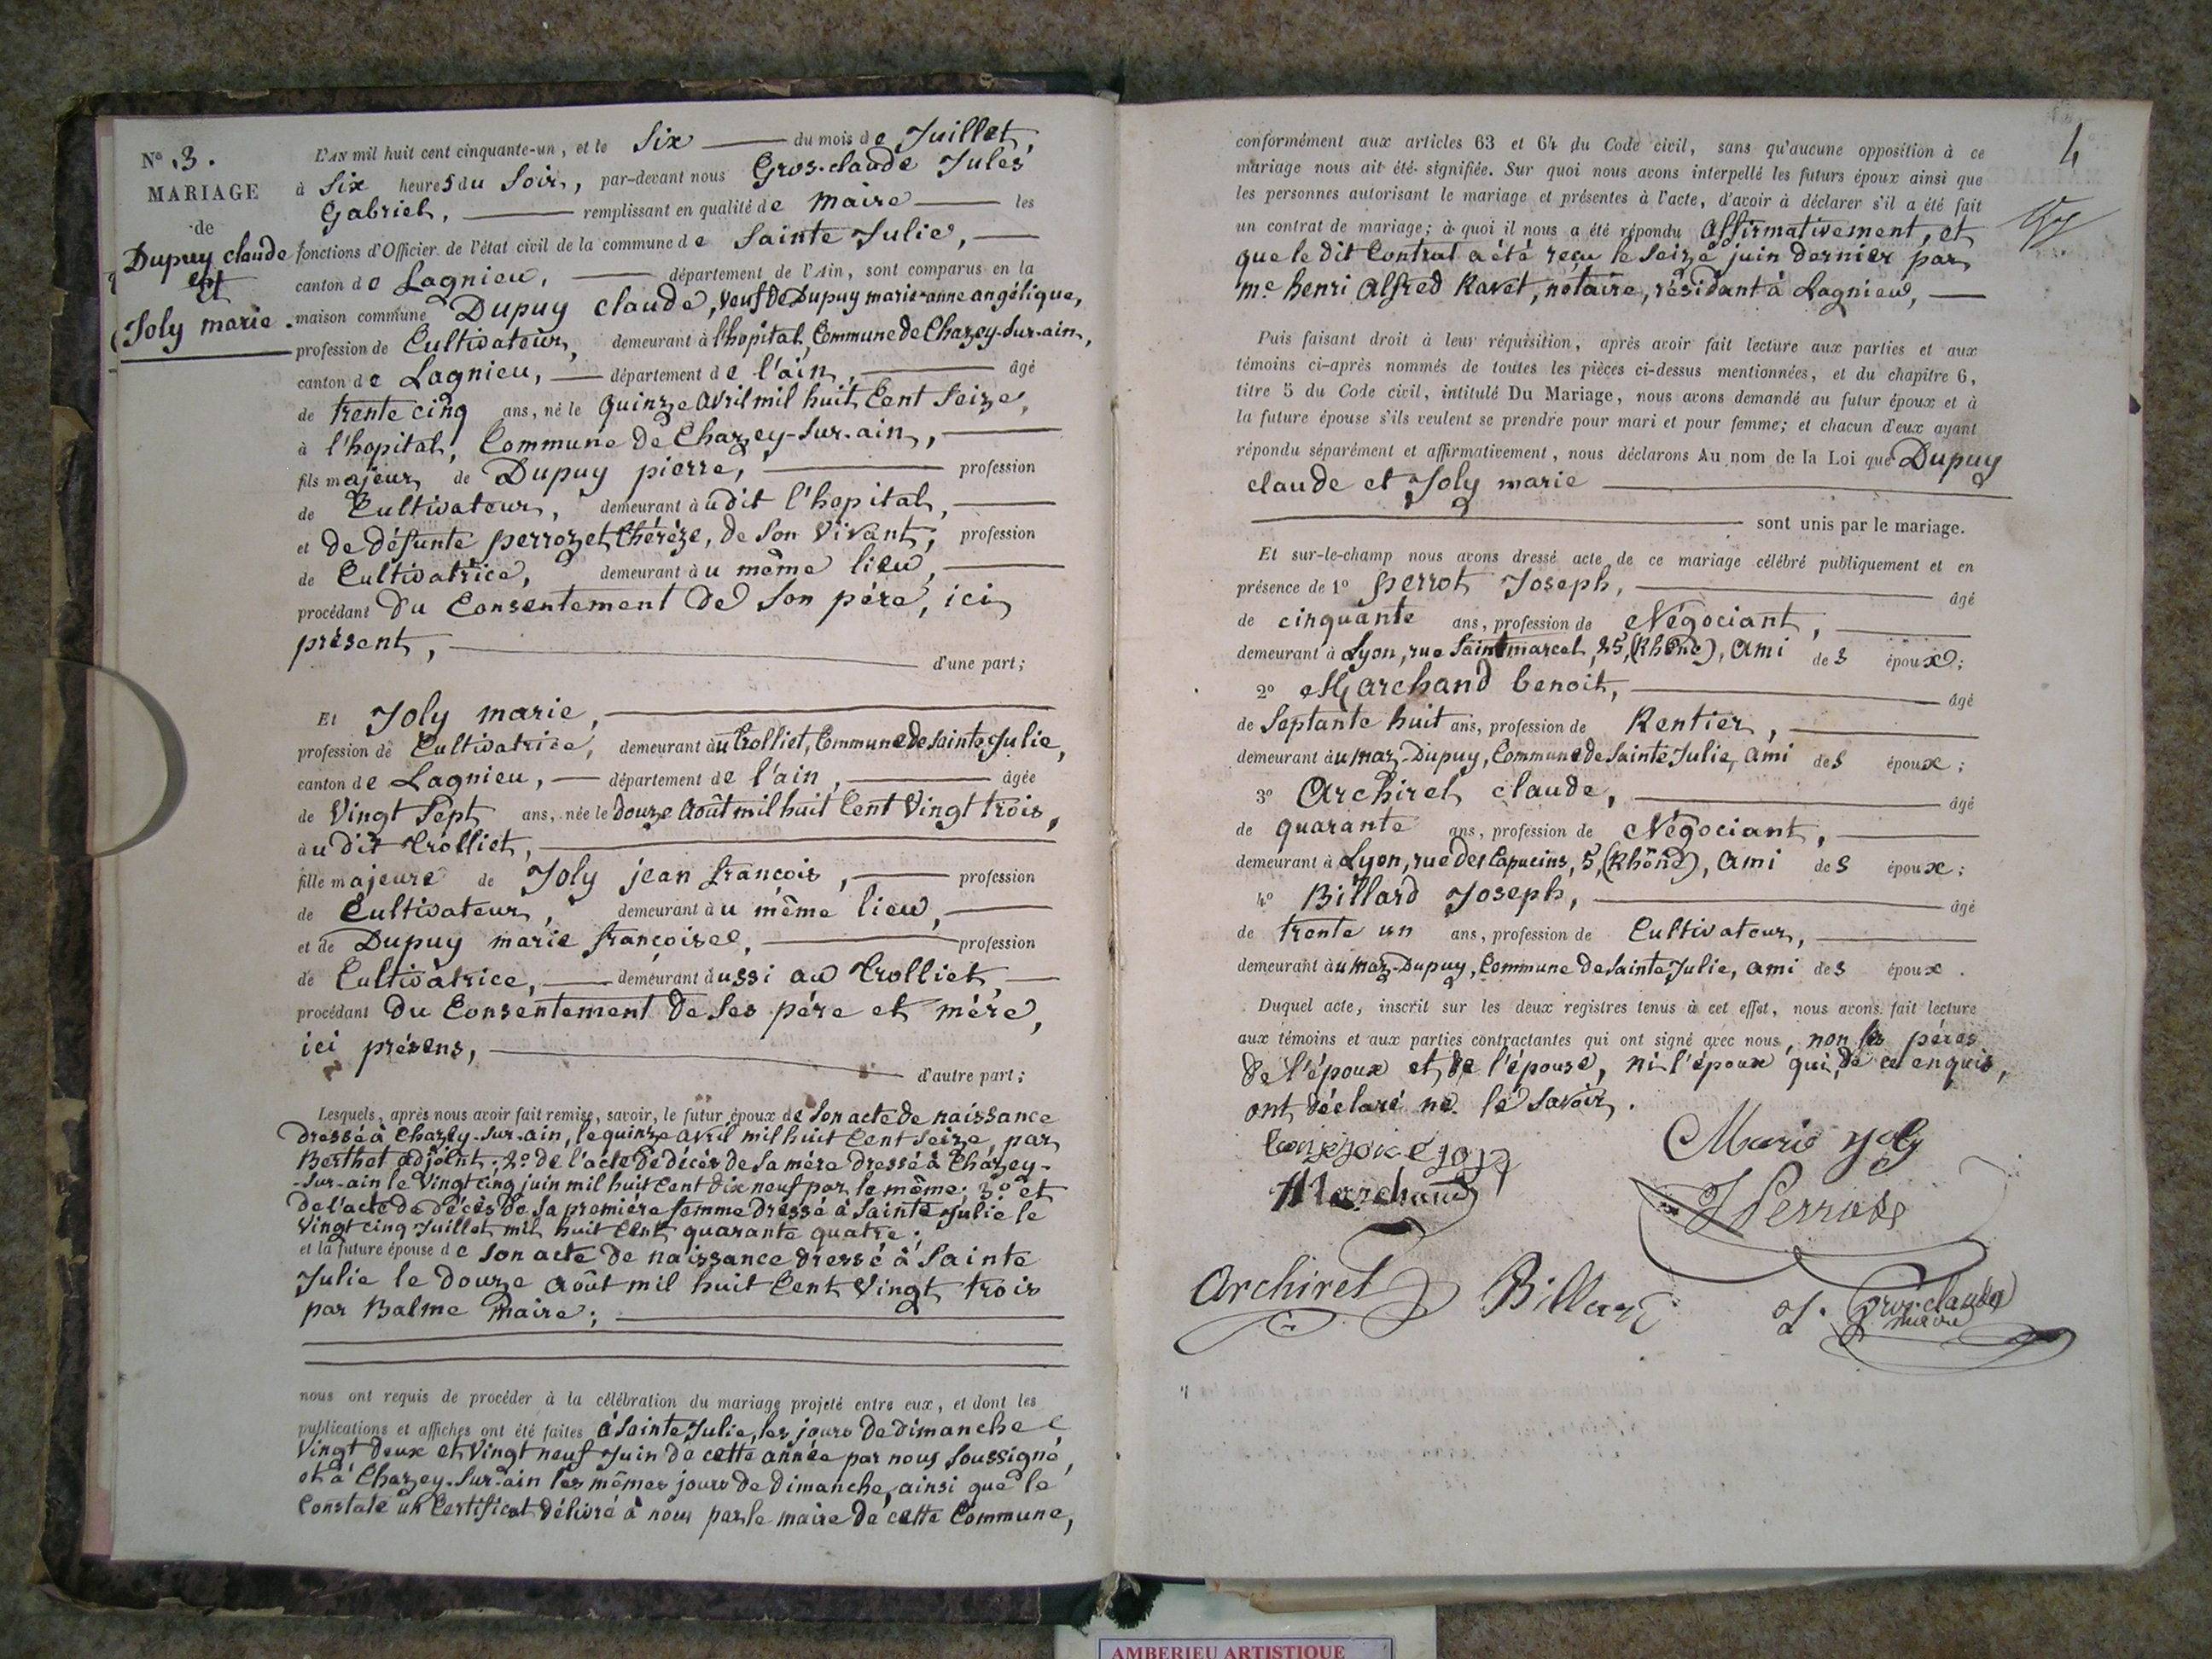 N° 3.
MARIAGE
de
Dupuy claude
et
Joly marie.
L'AN mil huit cent cinquante-un, et le Six du mois de Juillet,
à Six heures du Soir, par-devant nous Gros-claude Jules
Gabriel, remplissant en qualité de Maire les
fonctions d'Officier de l'état civil de la commune de Sainte Julie,
canton de Lagnieu, département de l'Ain, sont comparus en la
maison commune Dupuy claude, veuf de Dupuy marie-anne angélique,
profession de Cultivateur, demeurant à l'hopital, Commune de Chazey-Sur-ain,
canton de Lagnieu, département de l'ain, âgé
de trente cinq ans, né le quinze avril mil huit Cent Seize,
à l'hopital, Commune de Chazey-Sur-ain,
fils majeur de Dupuy pierre, profession
de Cultivateur, demeurant audit l'hopital,
et de défunte perrozet thérèze, de Son Vivant, profession
de Cultivatrice, demeurant au même lieu,
procédant du Consentement de Son père, ici
présent, d'une part;
Et Joly marie,
profession de Cultivatrice, demeurant au trolliet, Commune de Sainte Julie,
canton de Lagnieu, département de l'ain, âgée
de Vingt Sept ans, née le douze Août mil huit Cent Vingt trois,
au dit trolliet,
fille majeure de Joly jean françois, profession
de Cultivateur, demeurant au même lieu,
et de Dupuy marie françoise, profession
de Cultivatrice, demeurant aussi au trolliet,
procédant du Consentement de Ses père et mère,
ici présens, d'autre part;
Lesquels, après nous avoir fait remise, savoir, le futur époux de Son acte de naissance
dressé à Chazey-Sur-ain, le quinze avril mil huit Cent Seize, par
Berthet adjoint; 2° de l'acte de décès de Sa mère dressé à Chazey-
-Sur-ain le Vingt cinq juin mil huit Cent dix neuf par le même; 3° et
de l'acte de décès de Sa première femme dressé à Sainte Julie le
Vingt cinq Juillet mil huit Cent quarante quatre;
et la future épouse de Son acte de naissance dressé à Sainte
Julie le douze Août mil huit Cent Vingt trois
par Balme Maire;
nous ont requis de procéder à la célébration du mariage projeté entre eux, et dont les
publications et affiches ont été faites à Sainte Julie, les jours de dimanche
Vingt deux et Vingt neuf Juin de cette année par nous Soussigné,
et à Chazey-Sur-ain les mêmes jours de Dimanche, ainsi que le
Constate un Certificat délivré à nous par le maire de cette Commune,
4
conformément aux articles 63 et 64 du Code civil, sans qu'aucune opposition à ce
mariage nous ait été signifiée. Sur quoi nous avons interpellé les futurs époux ainsi que
les personnes autorisant le mariage et présentes à l'acte, d'avoir à déclarer s'il a été fait
un contrat de mariage; à quoi il nous a été répondu Affirmativement, et
que le dit Contrat a été reçu le Seize juin dernier par
me henri Alfred Ravet, notaire, résidant à Lagnieu,
Puis faisant droit à leur réquisition, après avoir fait lecture aux parties et aux
témoins ci-après nommés de toutes les pièces ci-dessus mentionnées, et du chapitre 6,
titre 5 du Code civil, intitulé Du Mariage, nous avons demandé au futur époux et à
la future épouse s'ils veulent se prendre pour mari et pour femme; et chacun d'eux ayant
répondu séparément et affirmativement, nous déclarons Au nom de la Loi que Dupuy
claude et Joly marie
sont unis par le mariage.
Et sur-le-champ nous avons dressé acte de ce mariage célébré publiquement et en
présence de 1° perrot Joseph, âgé
de cinquante ans, profession de Négociant,
demeurant à Lyon, rue Saint marcel, 25, (Rhône), Ami des époux;
2° Marchand benoit, âgé
de Septante huit ans, profession de Rentier,
demeurant au maz-Dupuy, Commune de Sainte Julie, ami des époux;
3° Archiret claude, âgé
de quarante ans, profession de Négociant,
demeurant à Lyon, rue des Capucins, 5, (Rhône), Ami des époux;
4° Billard Joseph, âgé
de trente un ans, profession de Cultivateur,
demeurant au maz-Dupuy, Commune de Sainte Julie, ami des époux.
Duquel acte, inscrit sur les deux registres tenus à cet effet, nous avons fait lecture
aux témoins et aux parties contractantes qui ont signé avec nous, non les pères
de l'époux et de l'épouse, ni l'époux qui, de ce enquis,
ont déclaré ne le Savoir.
Marie joly
Marchand
J Perrot
Archiret
Billard
J. Gros-claude
maire
AMBERIEU ARTISTIQUE